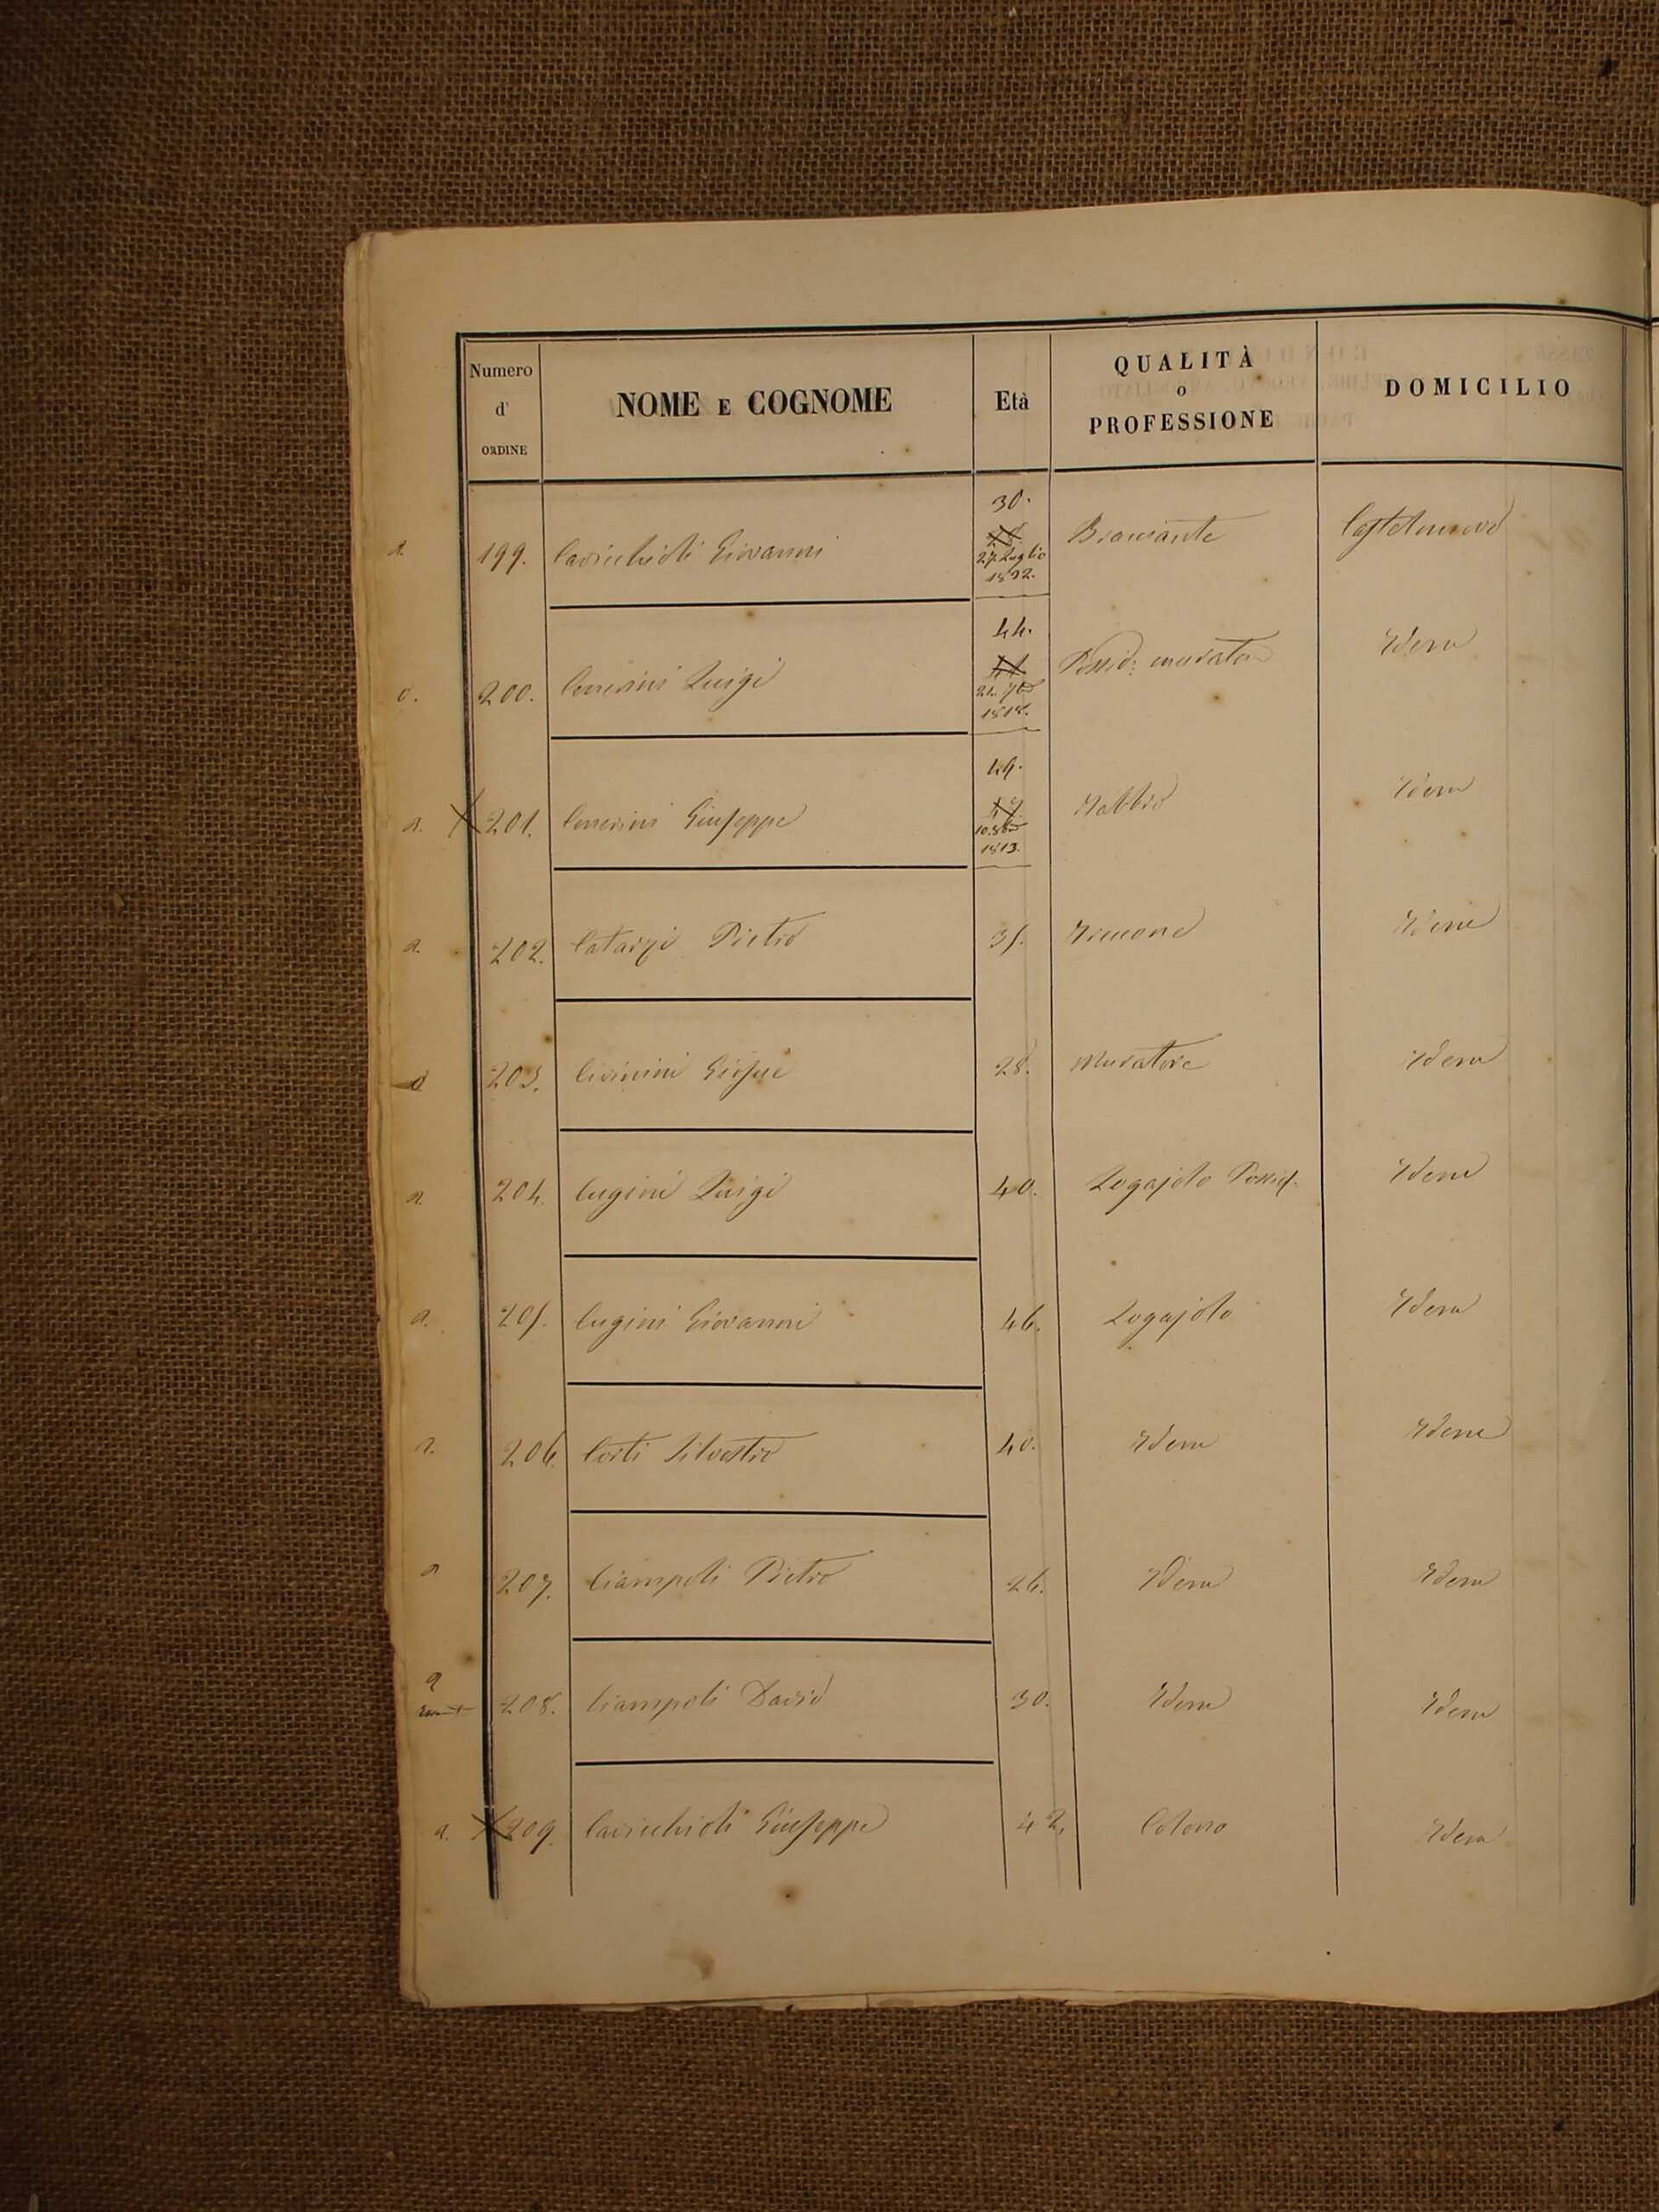 Numero d' ORDINE NOME E COGNOME Età QUALITÀ o PROFESSIONE DOMICILIO
30.
a. 199. Cavicchioli Giovanni 27 Luglio 1832. Bracciante Castelnuovo
44.
a. 200. Cenerini Luigi 24 7bre 1818. Possid: muratore Idem
49.
a. 201. Cenerini Giuseppe 10 8bre 1813. Fabbro Idem
a. 202. Catarzi Pietro 35. Idem
a 203. Civinini Giosuè 28. Muratore Idem
a. 204. Cugini Luigi 40. Logajolo Possid. Idem
a. 205. Cugini Giovanni 46. Logajolo Idem
a. 206. Corti Silvestro 40. Idem Idem
a 207. Ciampoli Pietro 26. Idem Idem
a 208. Ciampoli David 30. Idem Idem
a. 209. Cavicchioli Giuseppe 42. Colono Idem